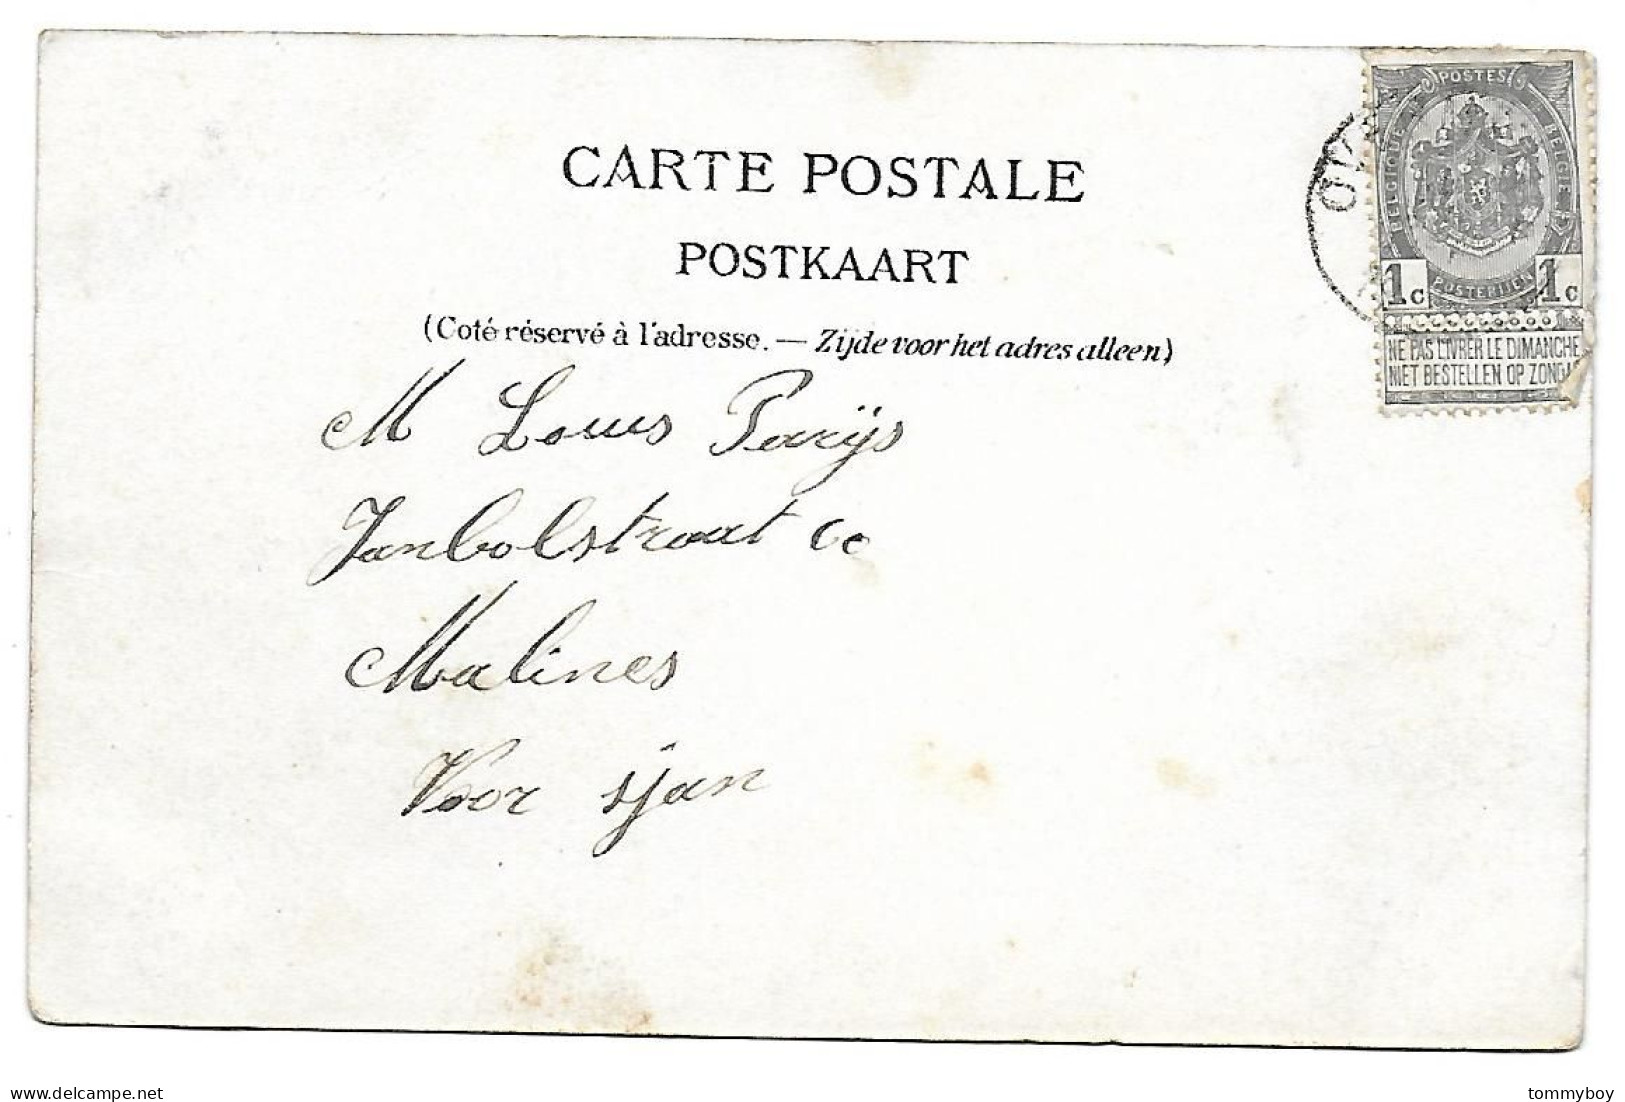 CARTE POSTALE
POSTKAART
(Coté réservé à l'adresse. — Zijde voor het adres alleen)
POSTES
BELGIQUE BELGIË
1c POSTERIJEN 1c
NE PAS LIVRER LE DIMANCHE
NIET BESTELLEN OP
M Louis Parijs
Malines
Voor sjan
delcampe.net
tommyboy